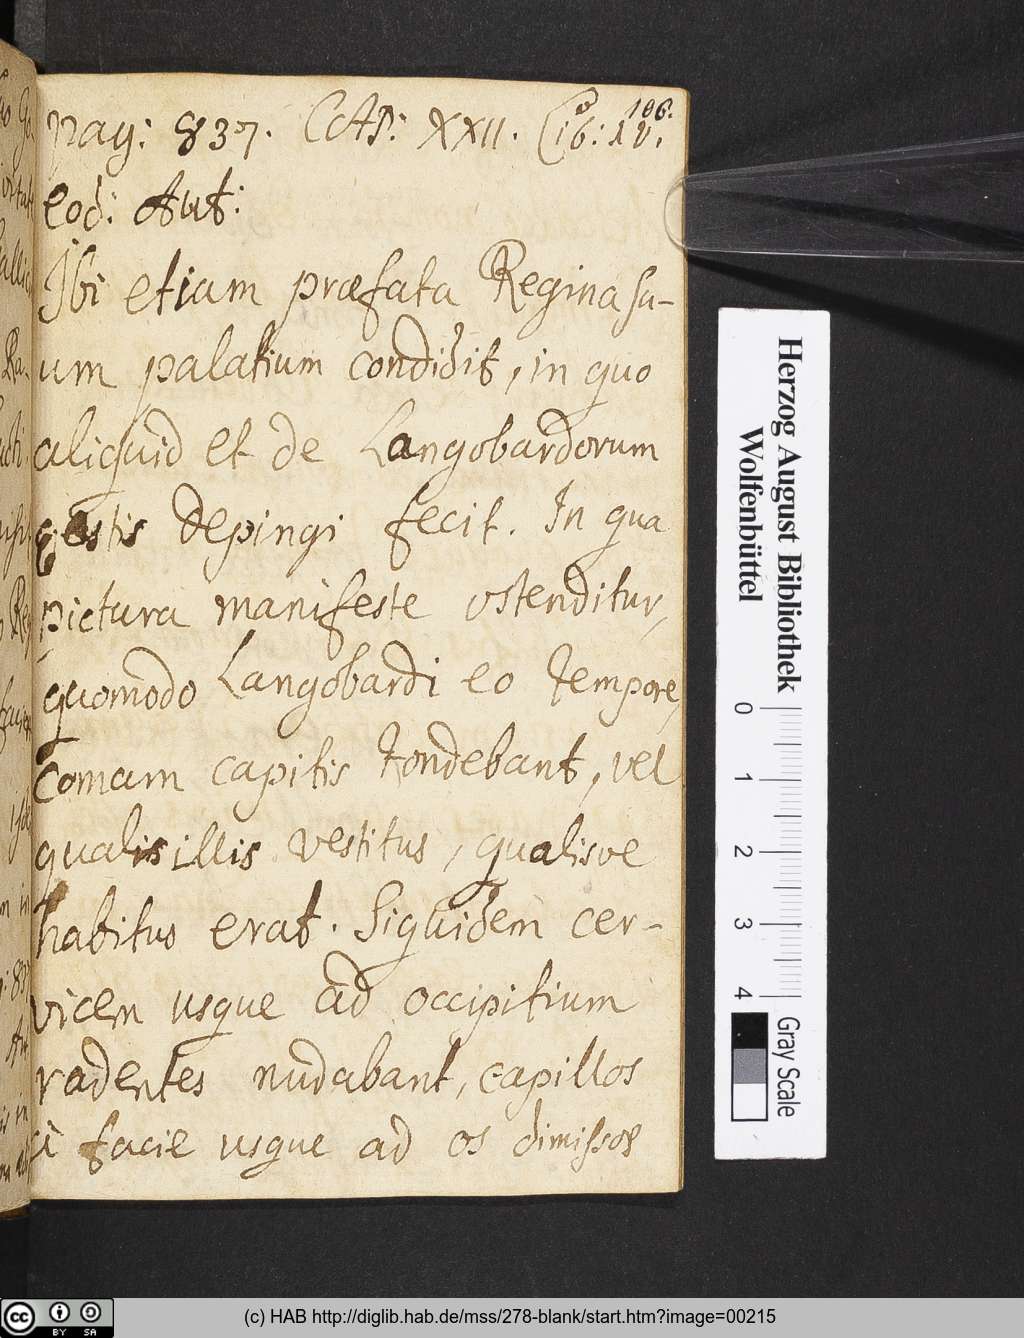 106.
pag: 837. CAP: XXII. Lib: IV.
eod: Aut:
Ibi etiam præfata Regina su-
um palatium condidit, in quo
aliquid et de Langobardorum
gestis depingi fecit. In qua
pictura manifeste ostenditur,
quomodo Langobardi eo tempore,
comam capitis tondebant, vel
qualis illis vestitus, qualisve
habitus erat. Siquidem cer-
vicem usque ad occipitium
radentes nudabant, capillos
à facie usque ad os dimissos
Herzog August Bibliothek
Wolfenbüttel
0 1 2 3 4
Gray Scale
cc BY SA
(c) HAB http://diglib.hab.de/mss/278-blank/start.htm?image=00215